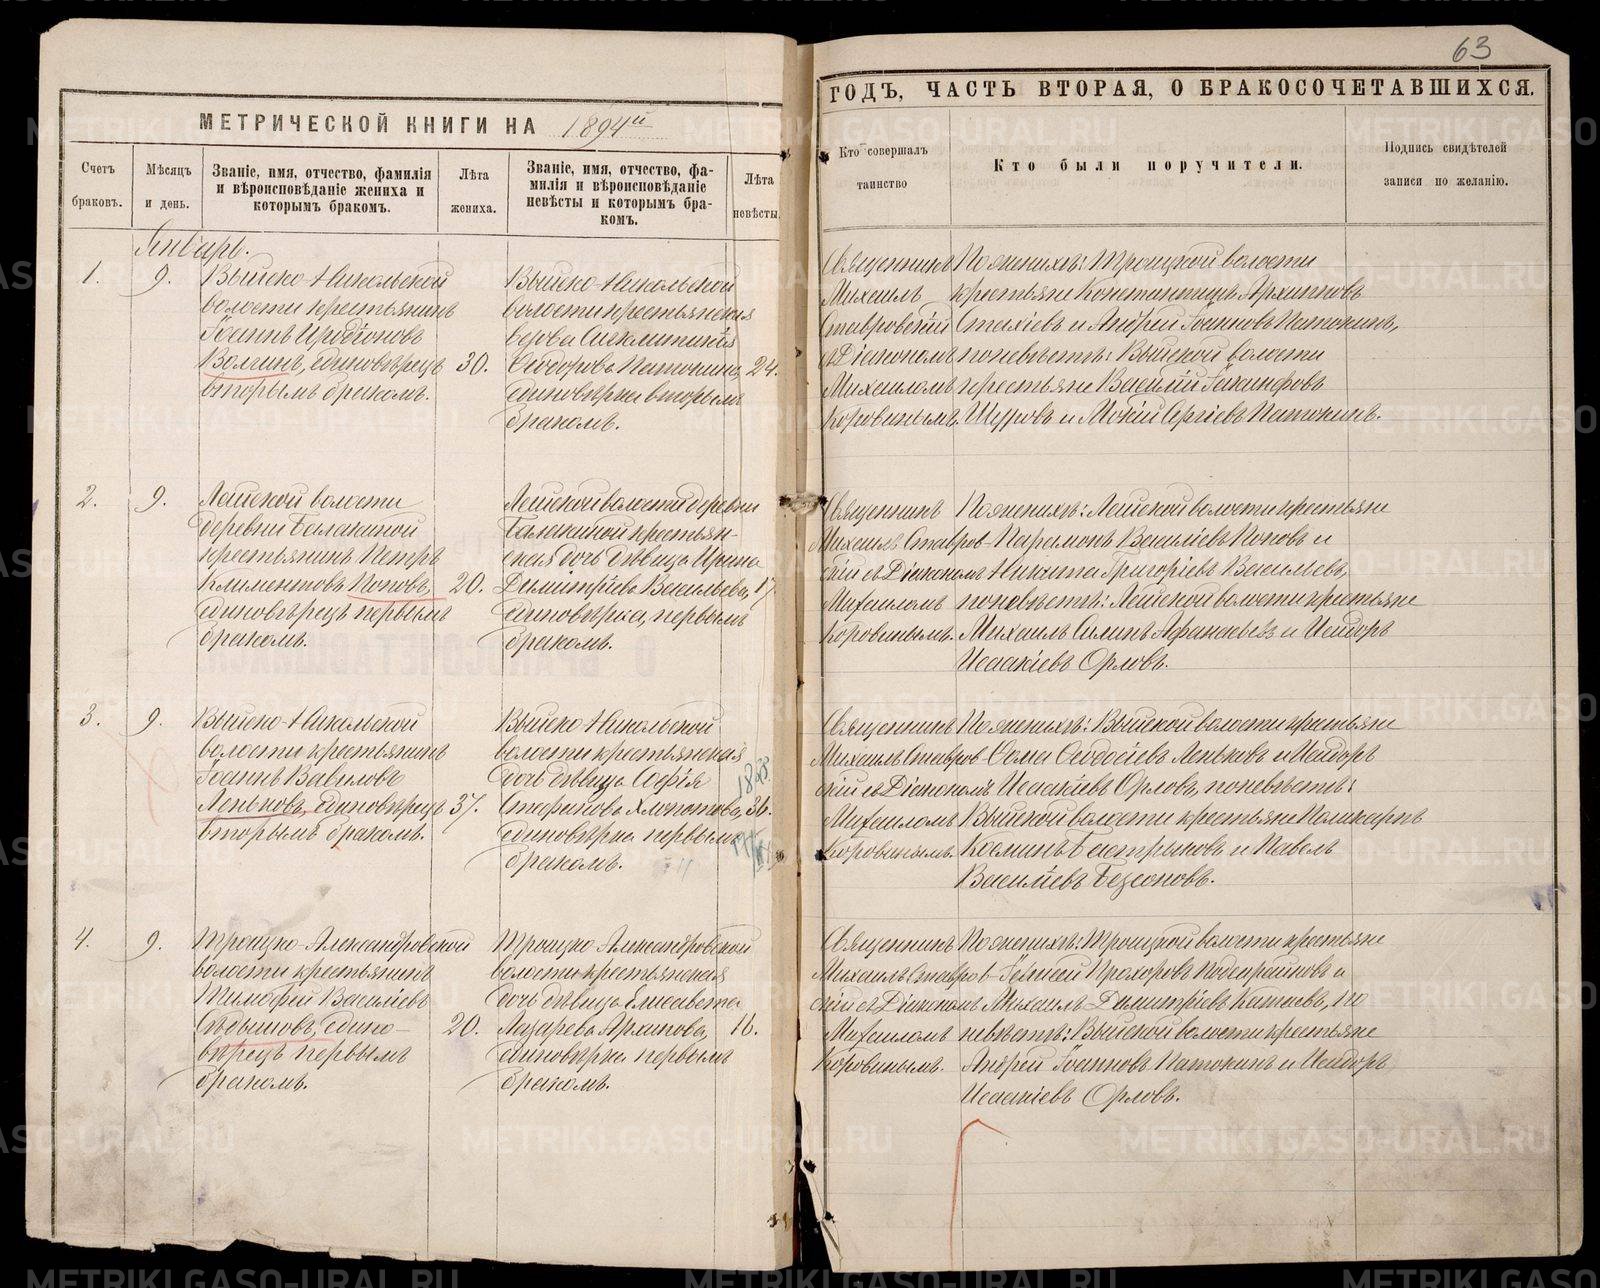 63
МЕТРИЧЕСКОЙ КНИГИ НА 1894й
ГОДЪ, ЧАСТЬ ВТОРАЯ, О БРАКОСОЧЕТАВШИХСЯ.
Счетъ браковъ.
Мѣсяцъ и день.
Званіе, имя, отчество, фамилія
и вѣроисповѣданіе жениха и
которымъ бракомъ.
Лѣта
жениха.
Званіе, имя, отчество, фа-
милія и вѣроисповѣданіе
невѣсты и которымъ бра-
комъ.
Лѣта
невѣсты.
Кто совершалъ
таинство
Кто были поручители.
Подпись свидѣтелей
записи по желанію.
Январь.
1.
9.
Выйско-Никольской
волости крестьянинъ
Іоаннъ Иродіоновъ
Волгинъ, единовѣрецъ
вторымъ бракомъ.
30.
Выйско-Никольской
волости крестьянская
вдова Сигклитикія
Ѳеодорова Паточкина,
единовѣрка вторымъ
бракомъ.
24.
Священникъ
Михаилъ
Ставровскій
съ Діакономъ
Михаиломъ
Коровинымъ.
По женихѣ: Троицкой волости
крестьяне Константинъ Архиповъ
Стахіевъ и Андрей Іоанновъ Паточкинъ,
по невѣстѣ: Выйской волости
крестьяне Василій Іакинфовъ
Щуровъ и Мокій Сергіевъ Паточкинъ.
2.
9.
Лайской волости
деревни Балакиной
крестьянинъ Петръ
Климентовъ Поповъ,
единовѣрецъ первымъ
бракомъ.
20.
Лайской волости деревни
Балакиной крестьян-
ская дочь дѣвица Ирина
Димитріева Васильева,
единовѣрка, первымъ
бракомъ.
17.
Священникъ
Михаилъ Ставров-
скій съ Діакономъ
Михаиломъ
Коровинымъ.
По женихѣ: Лайской волости крестьяне
Парамонъ Василіевъ Поповъ и
Никита Григоріевъ Васильевъ,
по невѣстѣ: Лайской волости крестьяне
Михаилъ Силинъ Афанасьевъ и Исидоръ
Исаакіевъ Орловъ.
3.
9.
Выйско-Никольской
волости крестьянинъ
Іоаннъ Вавиловъ
Леньковъ, единовѣрецъ
вторымъ бракомъ.
37.
Выйско-Никольской
волости крестьянская
дочь дѣвица Софія
Стефанова Хлопотова,
единовѣрка первымъ
бракомъ.
36.
Священникъ
Михаилъ Ставров-
скій съ Діакономъ
Михаиломъ
Коровинымъ.
По женихѣ: Выйской волости крестьяне
Ѳома Ѳеодосіевъ Леньковъ и Исидоръ
Исаакіевъ Орловъ, по невѣстѣ:
Выйской волости крестьяне Поликарпъ
Косминъ Бастрыковъ и Павелъ
Василіевъ Безсоновъ.
4.
9.
Троицко-Александровской
волости крестьянинъ
Тимофей Василіевъ
Сѣдышовъ, едино-
вѣрецъ первымъ
бракомъ.
20.
Троицко-Александровской
волости крестьянская
дочь дѣвица Елисавета
Лазарева Архипова,
единовѣрка первымъ
бракомъ.
16.
Священникъ
Михаилъ Ставров-
скій съ Діакономъ
Михаиломъ
Коровинымъ.
По женихѣ: Троицкой волости крестьяне
Прохоровъ и
Михаилъ Димитріевъ Китаевъ, по
невѣстѣ: Выйской волости крестьяне
Андрей Іоанновъ Паточкинъ и Исидоръ
Исаакіевъ Орловъ.
METRIKI.GASO-URAL.RU